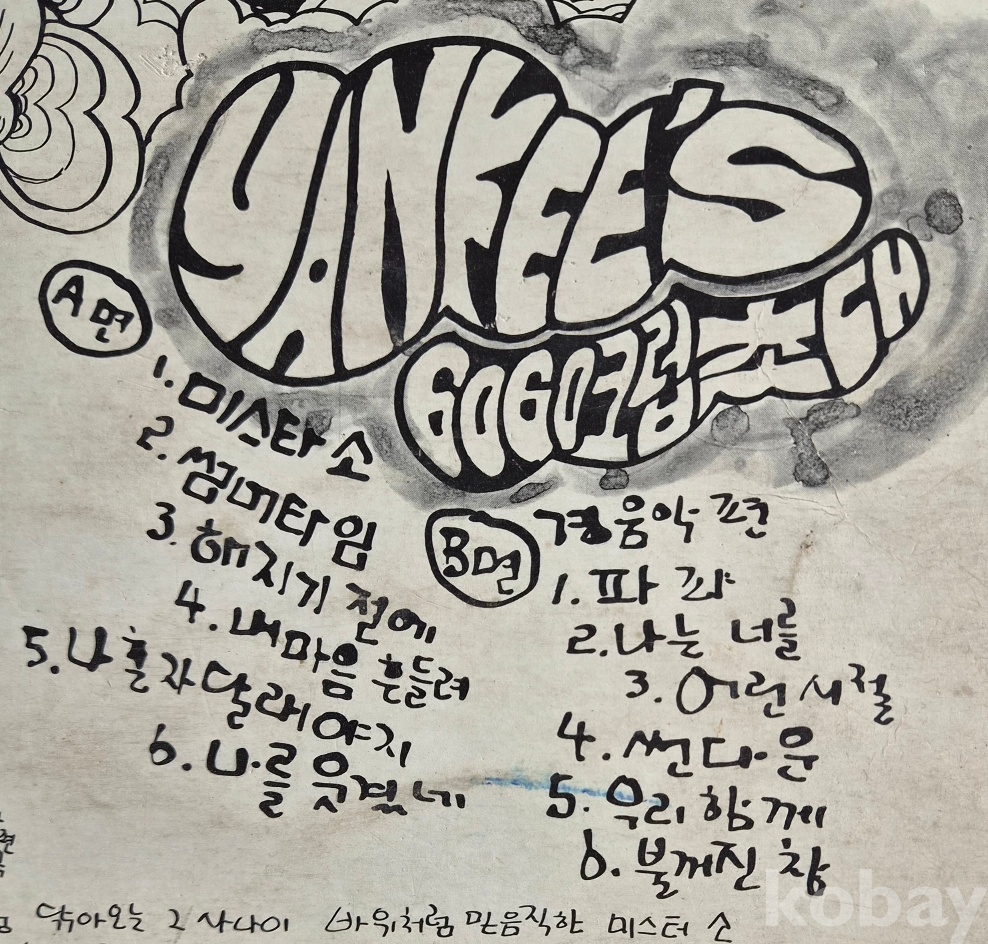 YANKEE'S
GOGO그룹초대
A면
1. 미스타 소
2. 썸머타임
3. 해지기 전에
4. 내마음 흔들려
5. 나 혼자 달래야지
6. 나를 웃겼네
B면 경음악 편
1. 파 라
2. 나는 너를
3. 어린 시절
4. 썬다운
5. 우리 함께
6. 불꺼진 창
닦아오는 그 사나이 바위처럼 믿음직한 미스터 소
kobay